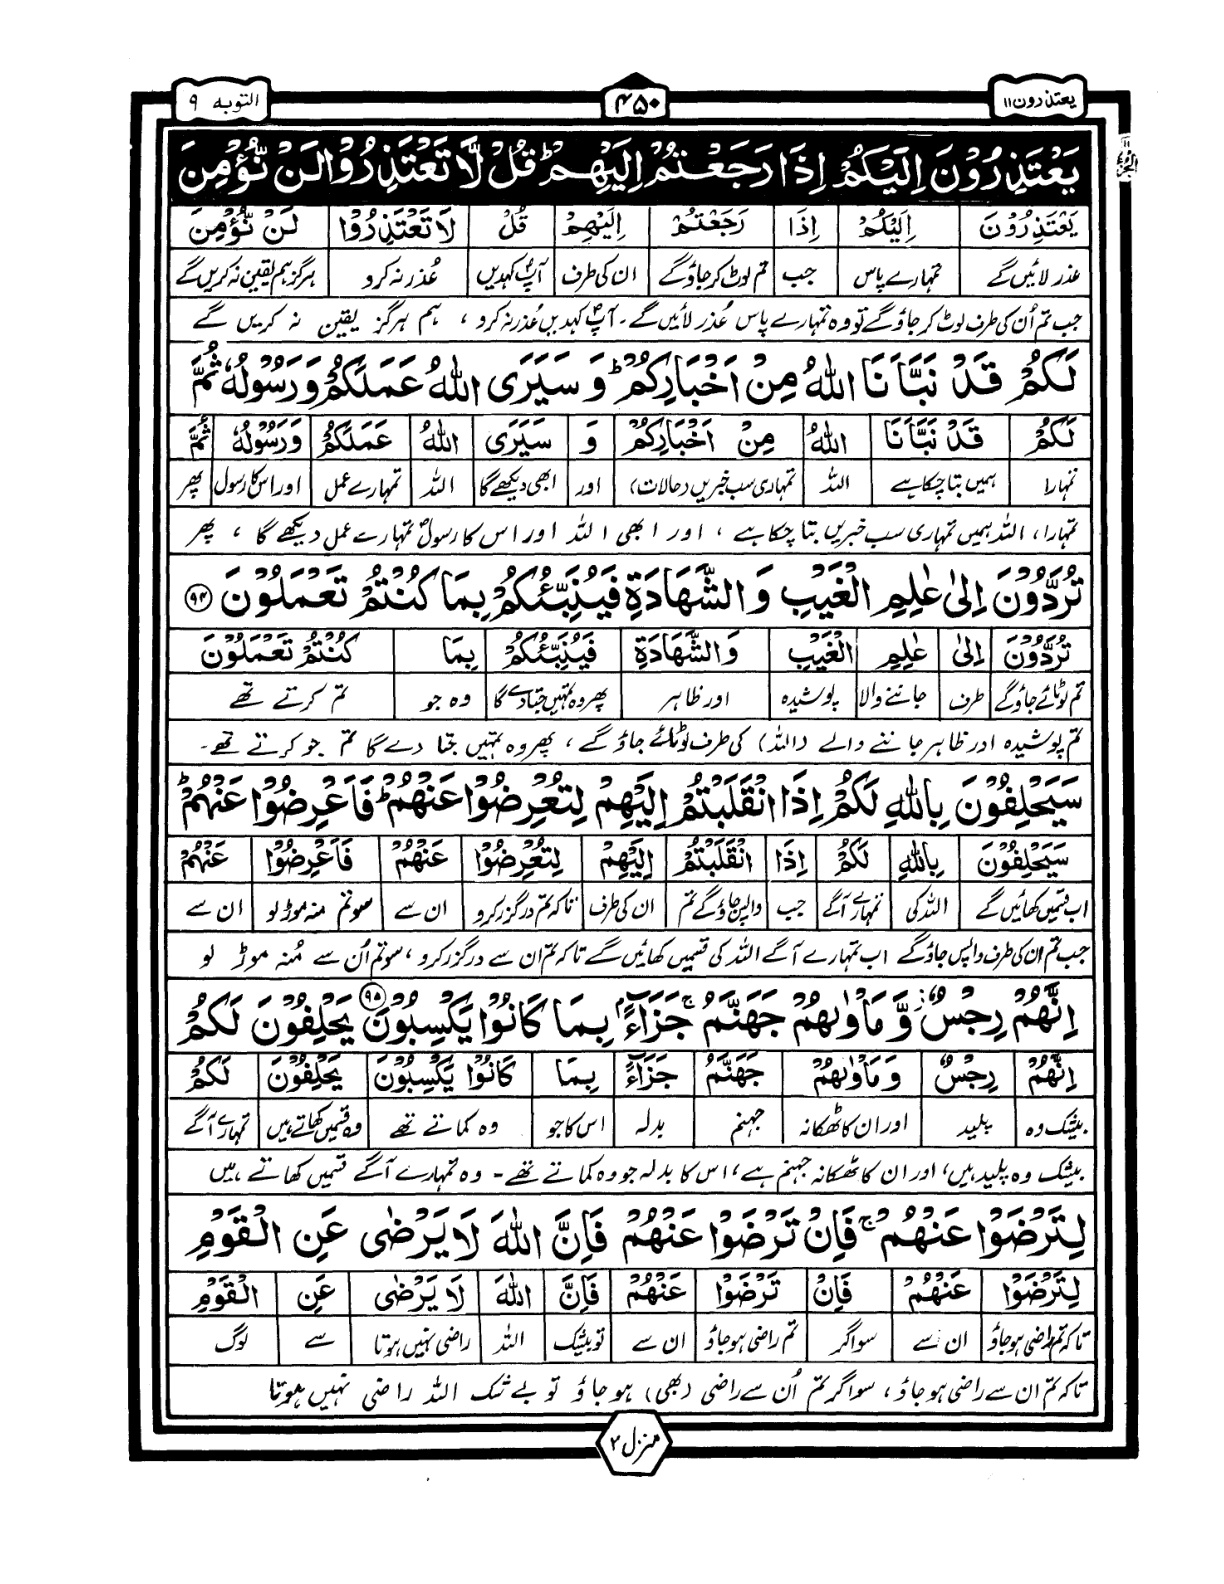 یعتذرون ۱۱
۴۵۰
التوبه ۹
یَعْتَذِرُوْنَ اِلَیْكُمْ اِذَا رَجَعْتُمْ اِلَیْهِمْ ؕ قُلْ لَّا تَعْتَذِرُوْا لَنْ نُّؤْمِنَ
یَعْتَذِرُوْنَ اِلَیْكُمْ اِذَا رَجَعْتُمْ اِلَیْهِمْ قُلْ لَا تَعْتَذِرُوْا لَنْ نُّؤْمِنَ
عذر لائیں گے تمہارے پاس جب تم لوٹ کر جاؤ گے ان کی طرف آپ کہدیں عُذر نہ کرو ہرگز ہم یقین نہ کریں گے
جب تم اُن کی طرف لوٹ کر جاؤ گے تو وہ تمہارے پاس عُذر لائیں گے۔ آپ کہدیں عُذر نہ کرو ، ہم ہرگز یقین نہ کریں گے
لَكُمْ قَدْ نَبَّاَنَا اللّٰهُ مِنْ اَخْبَارِكُمْ ؕ وَ سَیَرَی اللّٰهُ عَمَلَكُمْ وَ رَسُوْلُهٗ ثُمَّ
لَكُمْ قَدْ نَبَّاَنَا اللّٰهُ مِنْ اَخْبَارِكُمْ وَ سَیَرَی اللّٰهُ عَمَلَكُمْ وَرَسُوْلُهٗ ثُمَّ
تمہارا ہمیں بتا چکا ہے اللہ تمہاری سب خبریں (حالات) اور ابھی دیکھے گا اللہ تمہارے عمل اور اس کا رسول پھر
تمہارا، اللہ ہمیں تمہاری سب خبریں بتا چکا ہے ، اور ابھی اللہ اور اس کا رسول تمہارے عمل دیکھے گا ، پھر
تُرَدُّوْنَ اِلٰی عٰلِمِ الْغَیْبِ وَ الشَّهَادَةِ فَیُنَبِّئُكُمْ بِمَا كُنْتُمْ تَعْمَلُوْنَ ۹۴
تُرَدُّوْنَ اِلٰی عٰلِمِ الْغَیْبِ وَالشَّهَادَةِ فَیُنَبِّئُكُمْ بِمَا كُنْتُمْ تَعْمَلُوْنَ
تم لوٹائے جاؤ گے طرف جاننے والا پوشیدہ اور ظاہر پھر وہ تمہیں جتا دے گا وہ جو تم کرتے تھے
تم پوشیدہ اور ظاہر جاننے والے (اللہ) کی طرف لوٹائے جاؤ گے ، پھر وہ تمہیں جتا دے گا تم جو کرتے تھے۔
سَیَحْلِفُوْنَ بِاللّٰهِ لَكُمْ اِذَا انْقَلَبْتُمْ اِلَیْهِمْ لِتُعْرِضُوْا عَنْهُمْ ؕ فَاَعْرِضُوْا عَنْهُمْ ؕ
سَیَحْلِفُوْنَ بِاللّٰهِ لَكُمْ اِذَا انْقَلَبْتُمْ اِلَیْهِمْ لِتُعْرِضُوْا عَنْهُمْ فَاَعْرِضُوْا عَنْهُمْ
اب قسمیں کھائیں گے اللہ کی تمہارے آگے جب واپس جاؤ گے تم ان کی طرف تاکہ تم درگزر کرو ان سے سو تم منہ موڑ لو ان سے
جب تم ان کی طرف واپس جاؤ گے اب تمہارے آگے اللہ کی قسمیں کھائیں گے تاکہ تم ان سے درگزر کرو ، سو تم اُن سے مُنہ موڑ لو
اِنَّهُمْ رِجْسٌ ؗ وَّ مَاْوٰىهُمْ جَهَنَّمُ ۚ جَزَآءًۢ بِمَا كَانُوْا یَكْسِبُوْنَ ۹۵ یَحْلِفُوْنَ لَكُمْ
اِنَّهُمْ رِجْسٌ وَمَاْوٰىهُمْ جَهَنَّمُ جَزَآءً بِمَا كَانُوْا یَكْسِبُوْنَ یَحْلِفُوْنَ لَكُمْ
بیشک وہ پلید اور ان کا ٹھکانہ جہنم بدلہ اس کا جو وہ کماتے تھے وہ قسمیں کھاتے ہیں تمہارے آگے
بیشک وہ پلید ہیں، اور ان کا ٹھکانہ جہنم ہے، اس کا بدلہ جو وہ کماتے تھے۔ وہ تمہارے آگے قسمیں کھاتے ہیں
لِتَرْضَوْا عَنْهُمْ ۚ فَاِنْ تَرْضَوْا عَنْهُمْ فَاِنَّ اللّٰهَ لَا یَرْضٰی عَنِ الْقَوْمِ
لِتَرْضَوْا عَنْهُمْ فَاِنْ تَرْضَوْا عَنْهُمْ فَاِنَّ اللّٰهَ لَا یَرْضٰی عَنِ الْقَوْمِ
تاکہ تم راضی ہو جاؤ ان سے سو اگر تم راضی ہو جاؤ ان سے تو بیشک اللہ راضی نہیں ہوتا سے لوگ
تاکہ تم ان سے راضی ہو جاؤ ، سو اگر تم اُن سے راضی (بھی) ہو جاؤ تو بے شک اللہ راضی نہیں ہوتا
منزل ۲